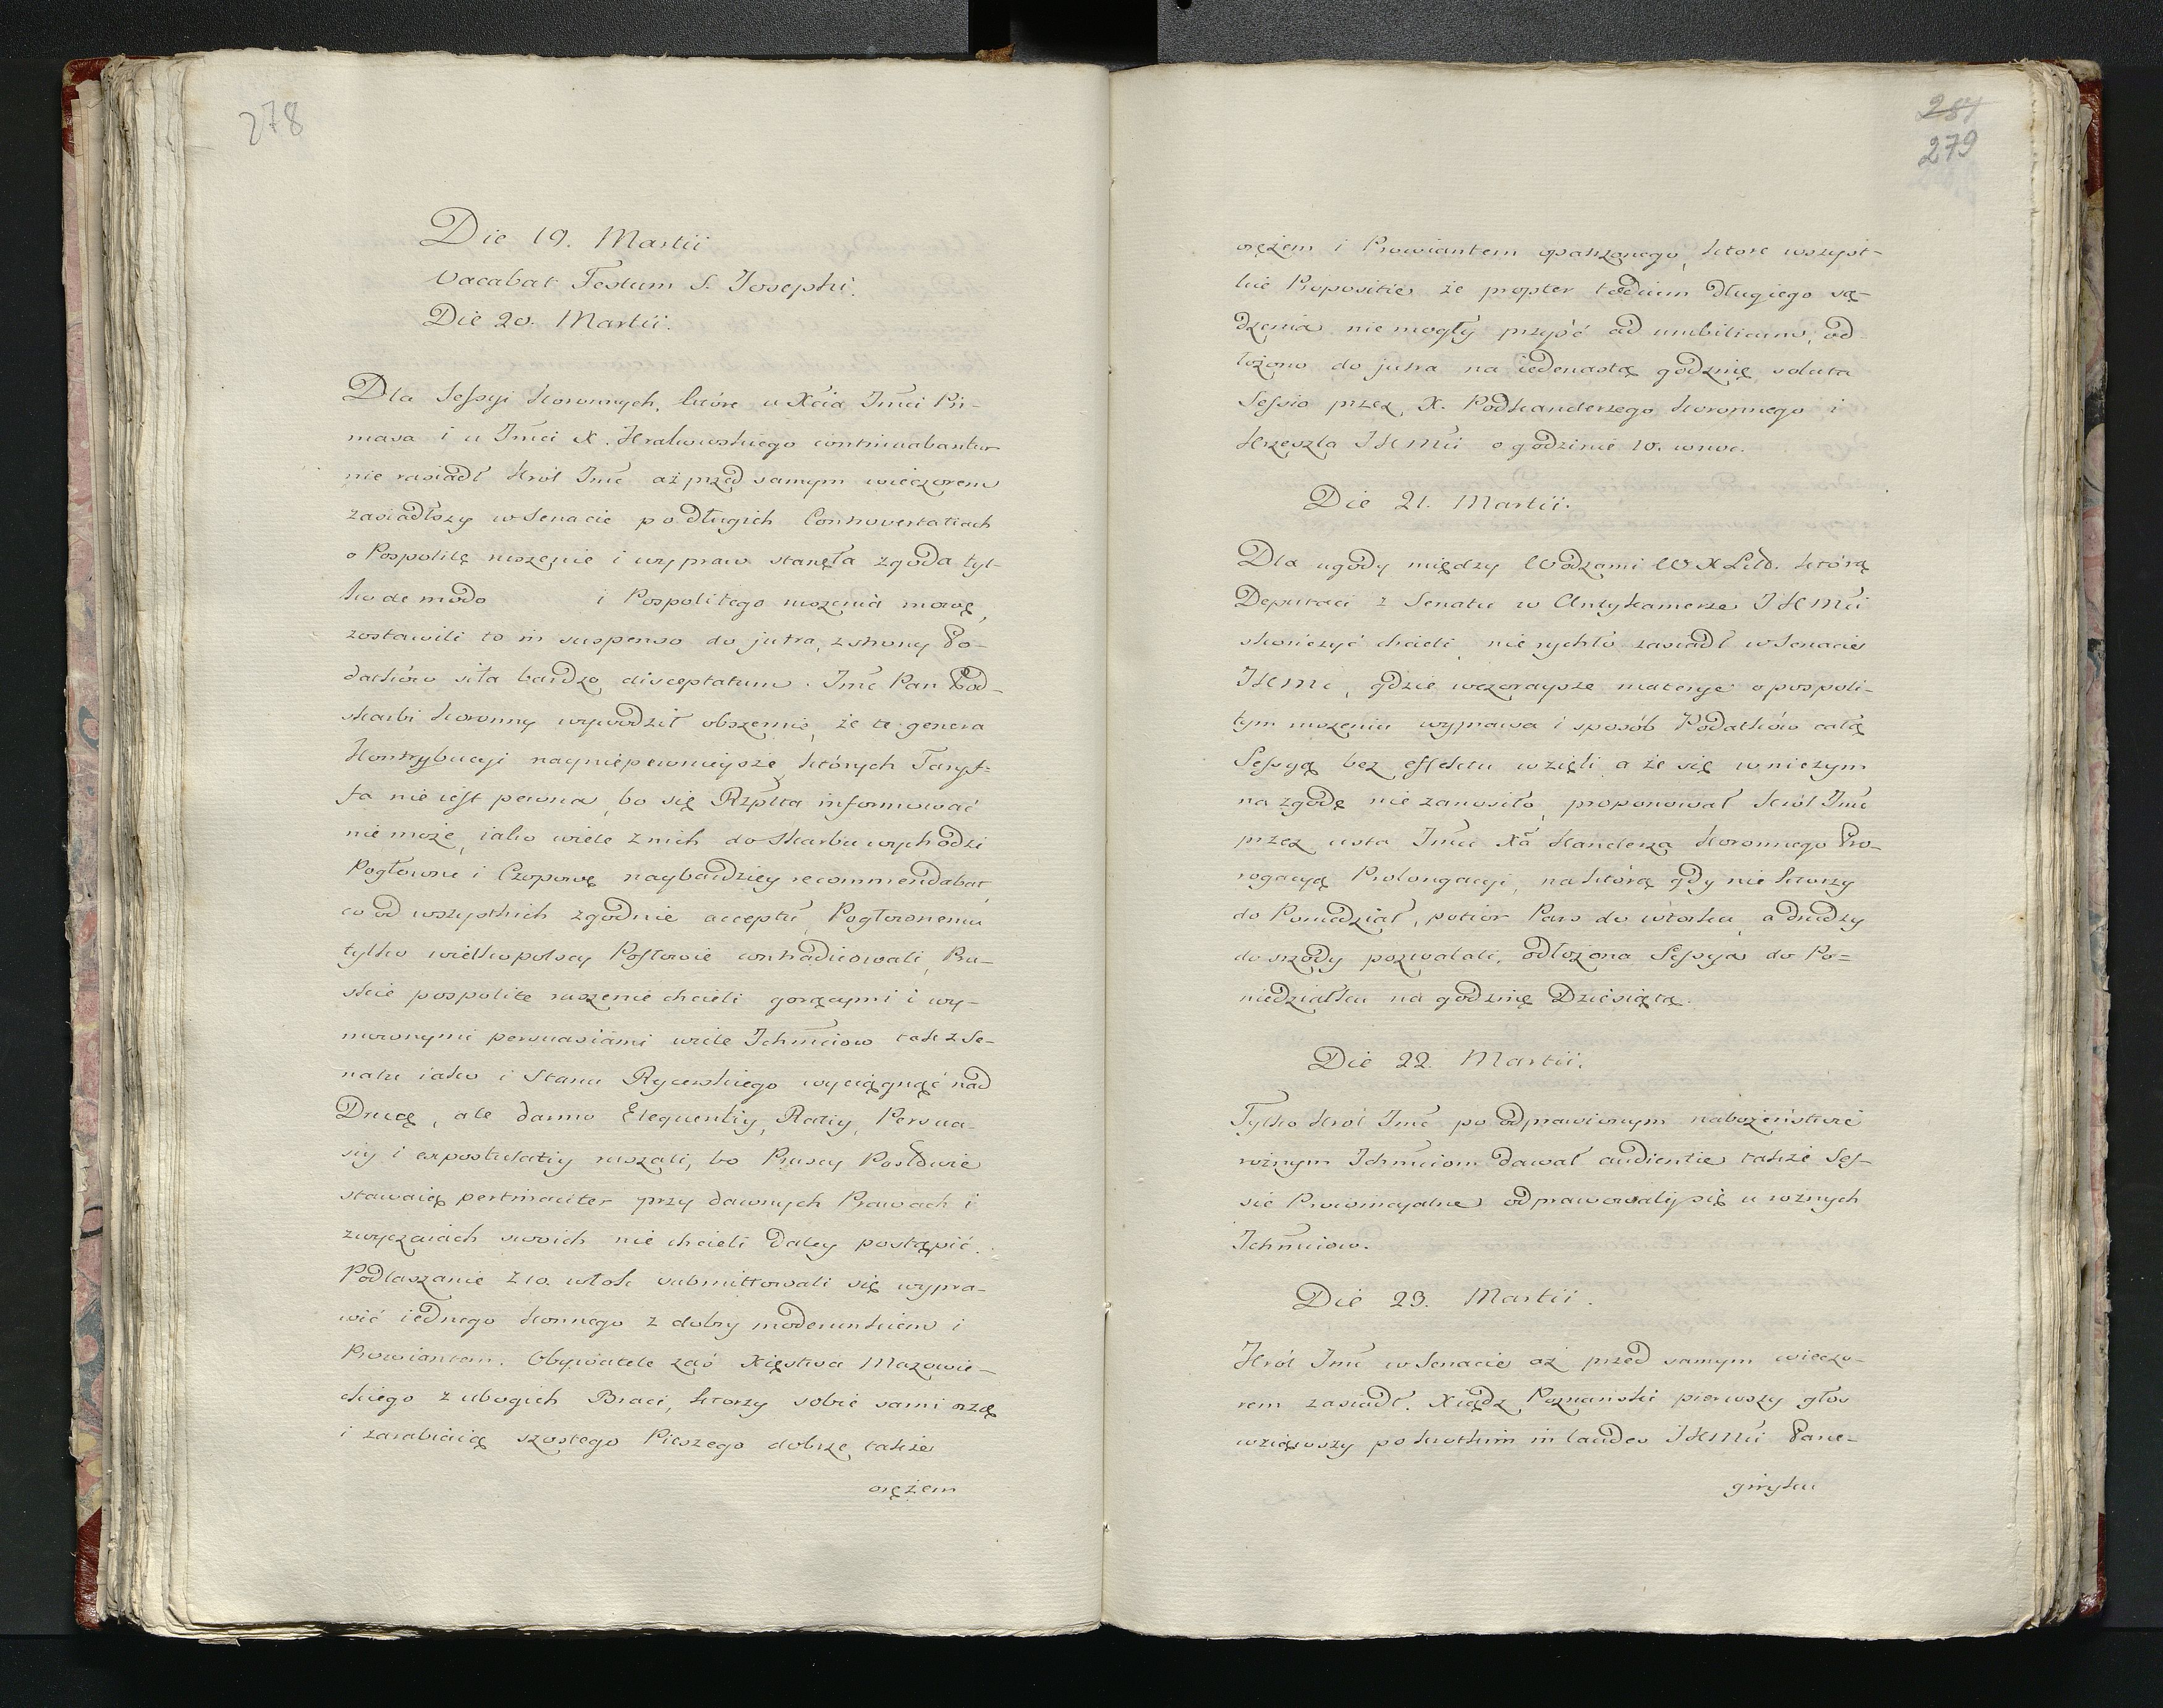 278
Die 19. Martii
Vacabat Festum S. Josephi.
Die 20. Martii.
Dla Sessyi Koronnych, które u Xcia Jmci Pri-
masa i u Jmci X. Krakowskiego continuabantur
nie zasiadł Król Jmć aż przed samym wieczorem
zasiadłszy w Senacie po długich Controversatiach
o Pospolite ruszenie i wypraw stanęła zgoda tyl-
ko de modo i Pospolitego ruszenia mowę,
zostawili to in suspenso do jutra, z strony Po-
datków siła bardzo disceptatum. Jmć Pan Pod-
skarbi koronny wywodził obszernie, że te genera
Kontrybucyi nayniepewnieysze, których Taryf-
fa nie iest pewna, bo się Rzplta informować
nie może, iako wiele z nich do Skarbu wychodzi
Pogłowne i Czopowę naybardziey recommendabat,
co od wszystkich zgodnie acceptū, Pogłownemu
tylko wielkopolscy Posłowie contradicowali, Pru-
skie pospolite ruszenie chcieli gorącymi i wy-
mownymi persuasiami wiele Ichmciow tak z Se-
natu iako i Stanu Rycerskiego wyciągnąć nad
Drucę, ale darmo Eloquentiy, Ratiy, Persua-
siy i expostulatiy ruszali, bo Pruscy Posłowie
stawaią pertinaciter przy dawnych Prawach i
zwyczaiach swoich nie chcieli daley postąpić.
Podlaszanie z 10. włók submittowali się wypra-
wić iednego konnego z dobry moderunkiem i
Prowiantem. Obywatele zaś Xięstwa Mazowie-
ckiego z ubogich Braci, ktorzy sobie sami orzą
i zarabiaią szostego Pieszego dobrze także
orężem
284
279
orężem i Prowiantem opatrzonego, ktore wszyst-
kie Propositie że propter tædium długiego są-
dzenia nie mogły przyść ad umbilicum, od-
łożono do jutra na iedenastą godzinę soluta
Sessio przez X. Podkanclerzego koronnego i
Krzeszła JKMci o godzinie 10. w noc.
Die 21. Martii.
Dla ugody między Wodzami WXLitt. którą
Deputaci z Senatu w Antykamerze JKMci
skończyć chcieli, nie rychło zasiadł w Senacie
JKMć, gdzie wczoraysze materye o pospoli-
tym ruszeniu wyprawa i sposób Podatków całą
Sessyą bez effektu wzięli a że się w niczym
na zgodę nie zanosiło, proponował Król Jmć
przez usta Jmci Xa Kanclerza Koronnego Pro-
rogacyą Prolongacyi, na którą gdy nie ktorzy
do Poniedział, potior Pars do wtorku, a drudzy
do srzody pozwalali, odłożona Sessya do Po-
niedziałku na godzinę Dziesiątą.
Die 22. Martii.
Tylko Król Jmć po odprawionym nabożeństwie
rożnym Ichmciom dawał audientie także Ses-
sie Prowincyalne odprawowały się u rożnych
Ichmciow.
Die 23. Martii.
Król Jmć w Senacie aż przed samym wieczo-
rem zasiadł. Xiądz Poznański pierwszy głos
wziąwszy po krotkim in laudes JKMci Pane-
giryku